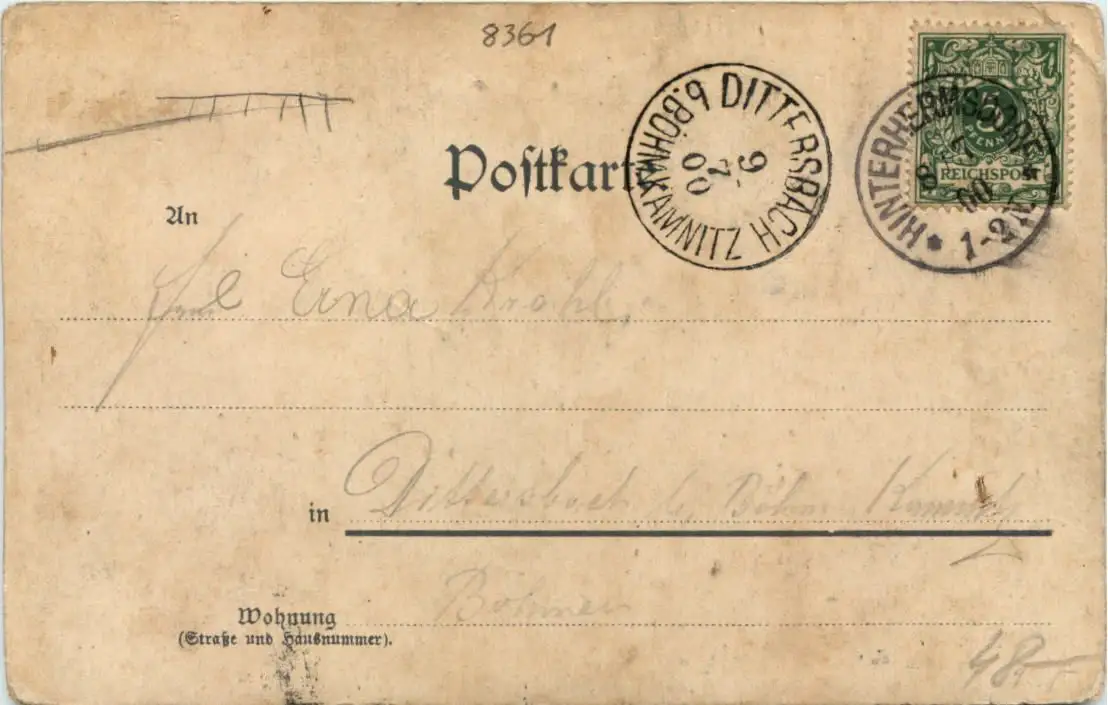 8361
Postkarte
DITTERSBACH b. BÖHM. KAMNITZ
9
7
00
HINTERHERMSDORF
8 7
00
1-2N
5
PFENNIG
REICHSPOST
An
Frl Erna Krahl
in Dittersbach b. Böhm Kamnitz
Böhmen
Wohnung
(Straße und Hausnummer).
48.-